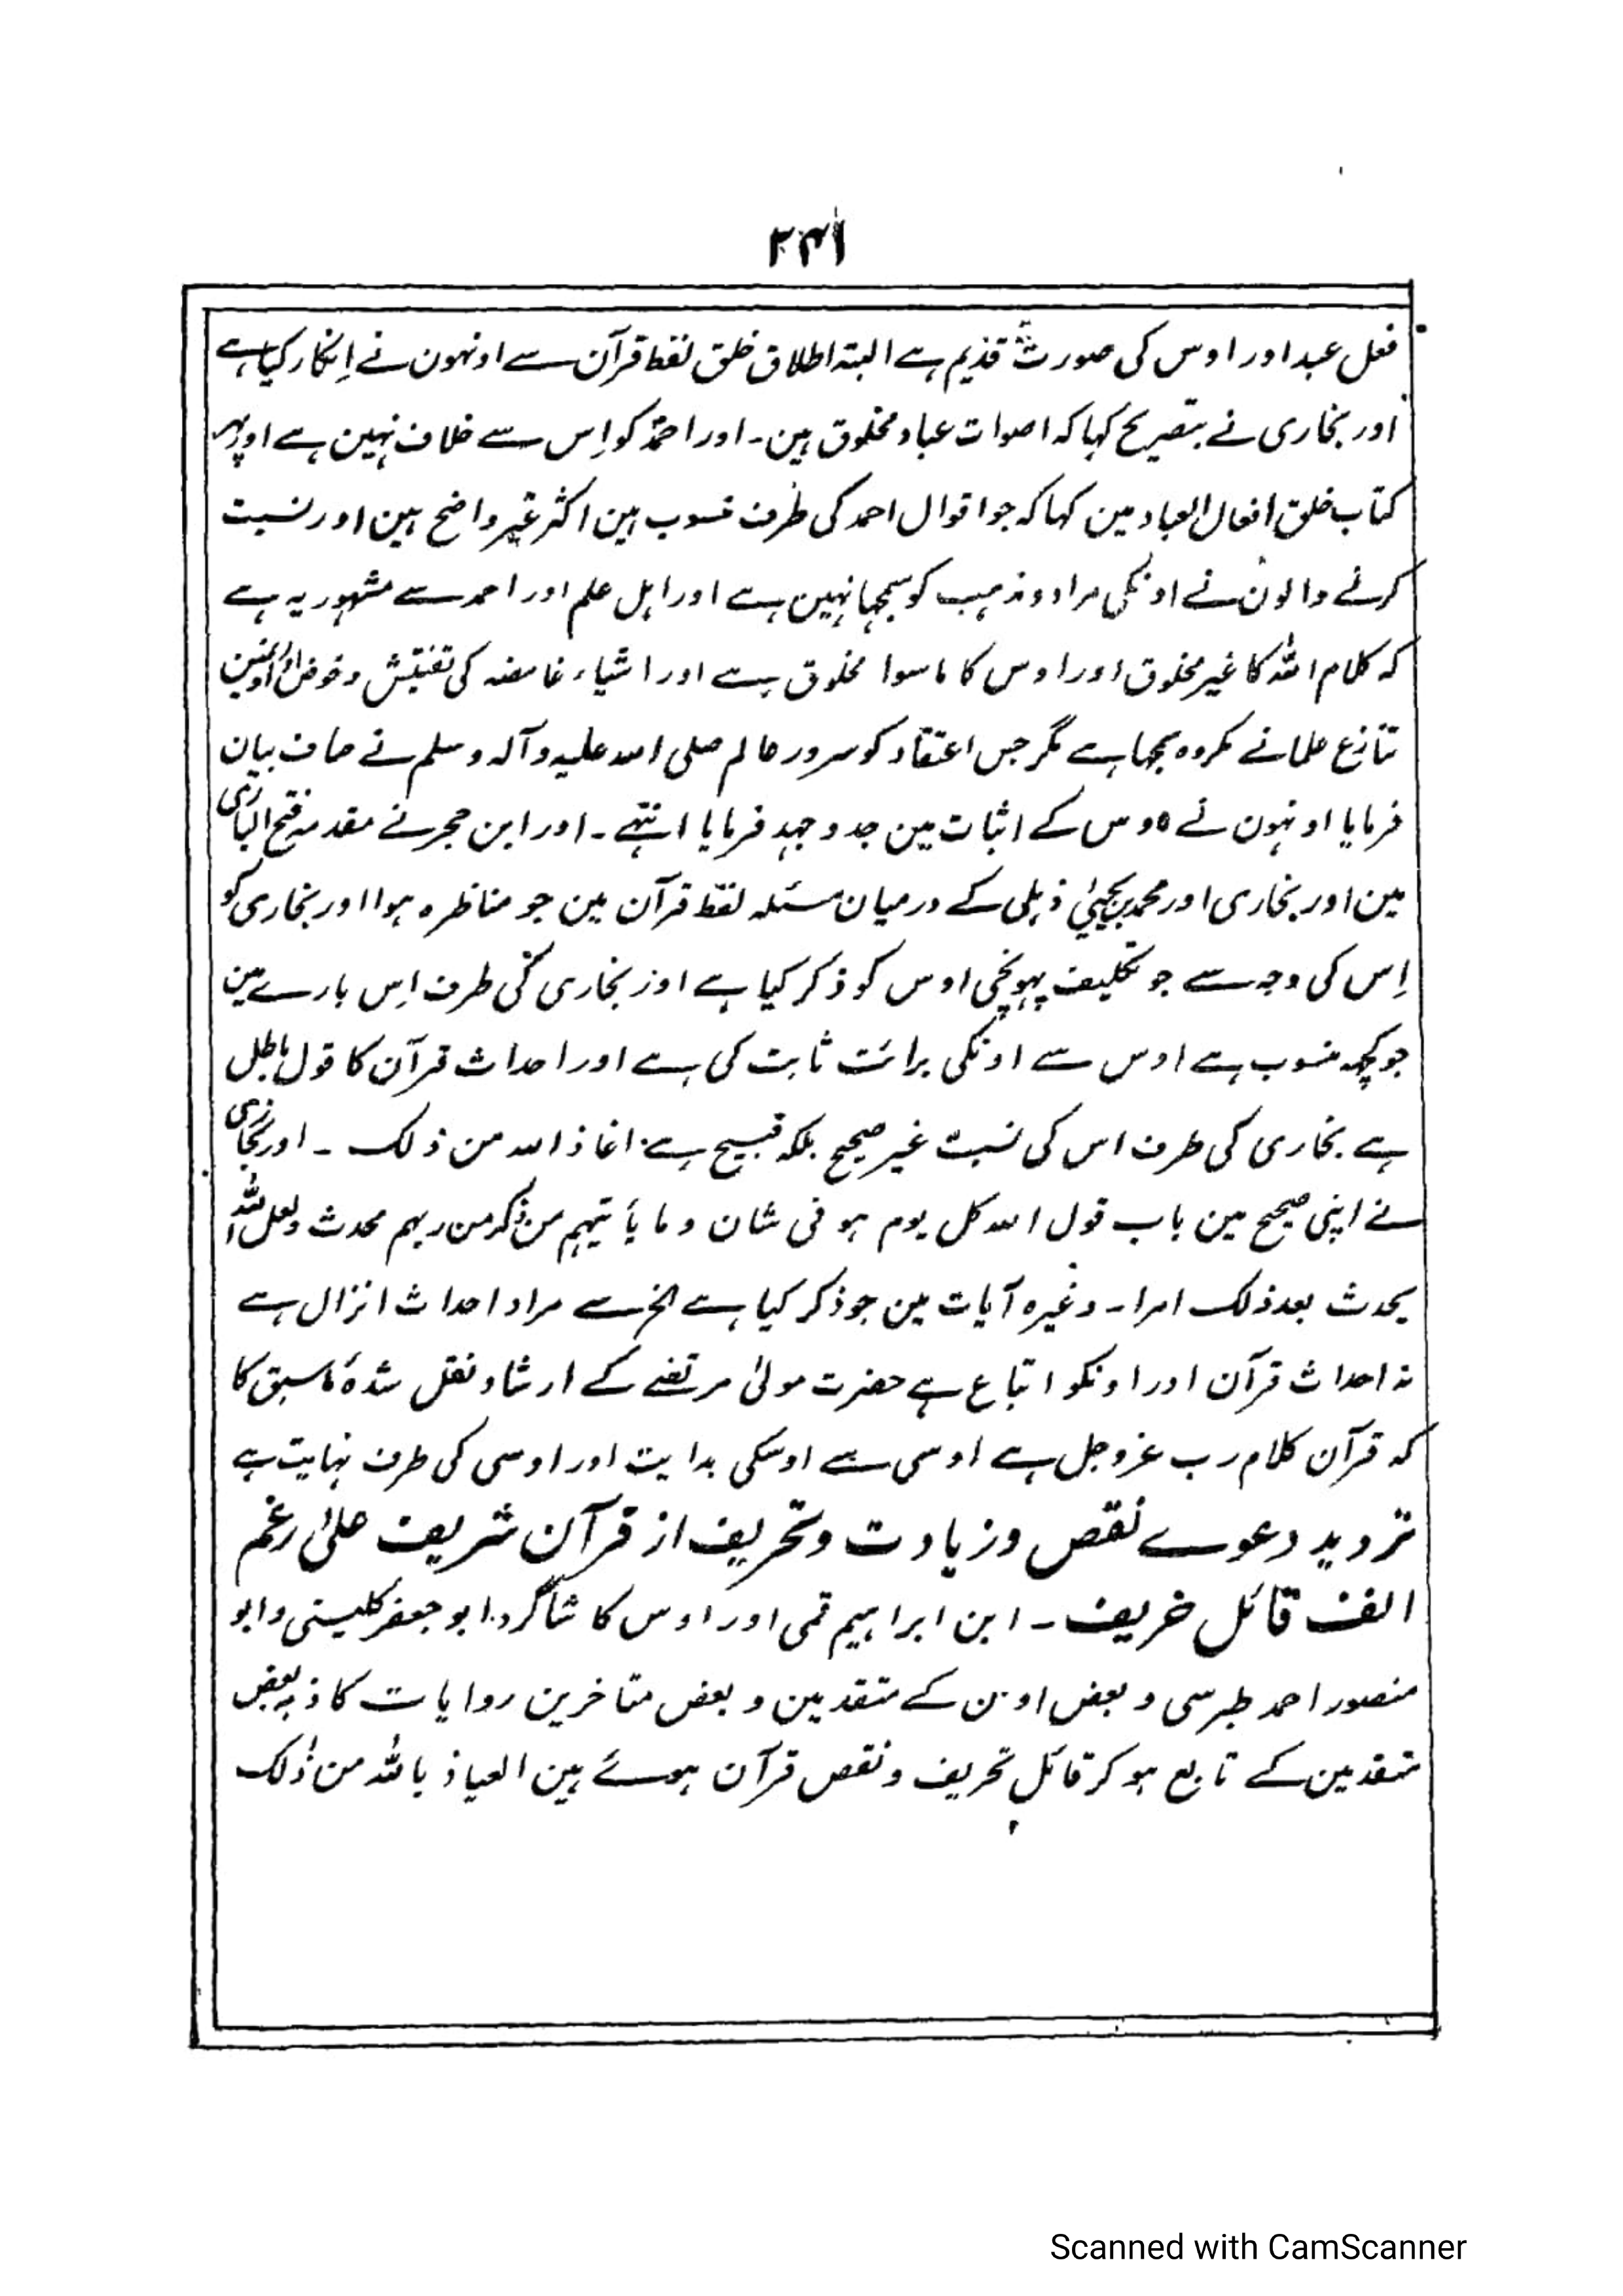 ۲۴۱
فعل عبد اور اوس کی صورت قدیم ہے البتہ اطلاق خلق لفظ قرآن سے اونہون نے اِنکار کیا ہے
اور بخاری نے بتصریح کہا کہ اصوات عباد مخلوق ہین۔ اور احمد کو اِس سے خلاف نہین ہے اور پہر
کتاب خلق افعال العباد مین کہا کہ جو اقوال احمد کی طرف منسوب ہین اکثر غیر واضح ہین اور نسبت
کرنے والون نے اونکی مراد و مذہب کو سمجہا نہین ہے اور اہل علم اور احمد سے مشہور یہ ہے
کہ کلام اللہ کا غیر مخلوق اور اوس کا ماسوا مخلوق ہے اور اشیاء غامضہ کی تفتیش و خوض اور اونمین
تنازع علما نے مکروہ سمجہا ہے مگر جس اعتقاد کو سرور عالم صلی اللہ علیہ وآلہ وسلم نے صاف بیان
فرمایا اونہون نے اوس کے اثبات مین جد و جہد فرمایا انتہے۔ اور ابن حجر نے مقدمہ فتح الباری
مین اور بخاری اور محمد بن یحییٰ ذہلی کے درمیان مسئلہ لفظ قرآن مین جو مناظرہ ہوا اور بخاری کو
اِس کی وجہ سے جو تکلیف پہونچی اوس کو ذکر کیا ہے اور بخاری کی طرف اِس بارے مین
جو کچہہ منسوب ہے اوس سے اونکی برائت ثابت کی ہے اور احداث قرآن کا قول باطل
ہے بخاری کی طرف اس کی نسبت غیر صحیح بلکہ قبیح ہے اعاذ اللہ من ذلک ۔ اور بخاری
نے اپنی صحیح مین باب قول اللہ کل یوم ہو فی شان و ما یأتیہم من ذکر من ربہم محدث و لعل اللہ
یحدث بعد ذلک امرا۔ وغیرہ آیات مین جو ذکر کیا ہے الخ سے مراد احداث انزال ہے
نہ احداث قرآن اور اونکو اتباع ہے حضرت مولیٰ مرتضے کے ارشاد نقل شدہٴ ماسبق کا
کہ قرآن کلام رب عزوجل ہے اوسی سے اوسکی بدایت اور اوسی کی طرف نہایت ہے
تردید دعوے نقص و زیادت و تحریف از قرآن شریف علیٰ رغم
الف قائل خریف ۔ ابن ابراہیم قمی اور اوس کا شاگرد ابو جعفر کلینی و ابو
منصور احمد طبرسی و بعض اون کے متقدمین و بعض متاخرین روایات کاذبہ بعض
متقدمین کے تابع ہو کر قائل تحریف و نقص قرآن ہوئے ہین العیاذ باللہ من ذٰلک
Scanned with CamScanner